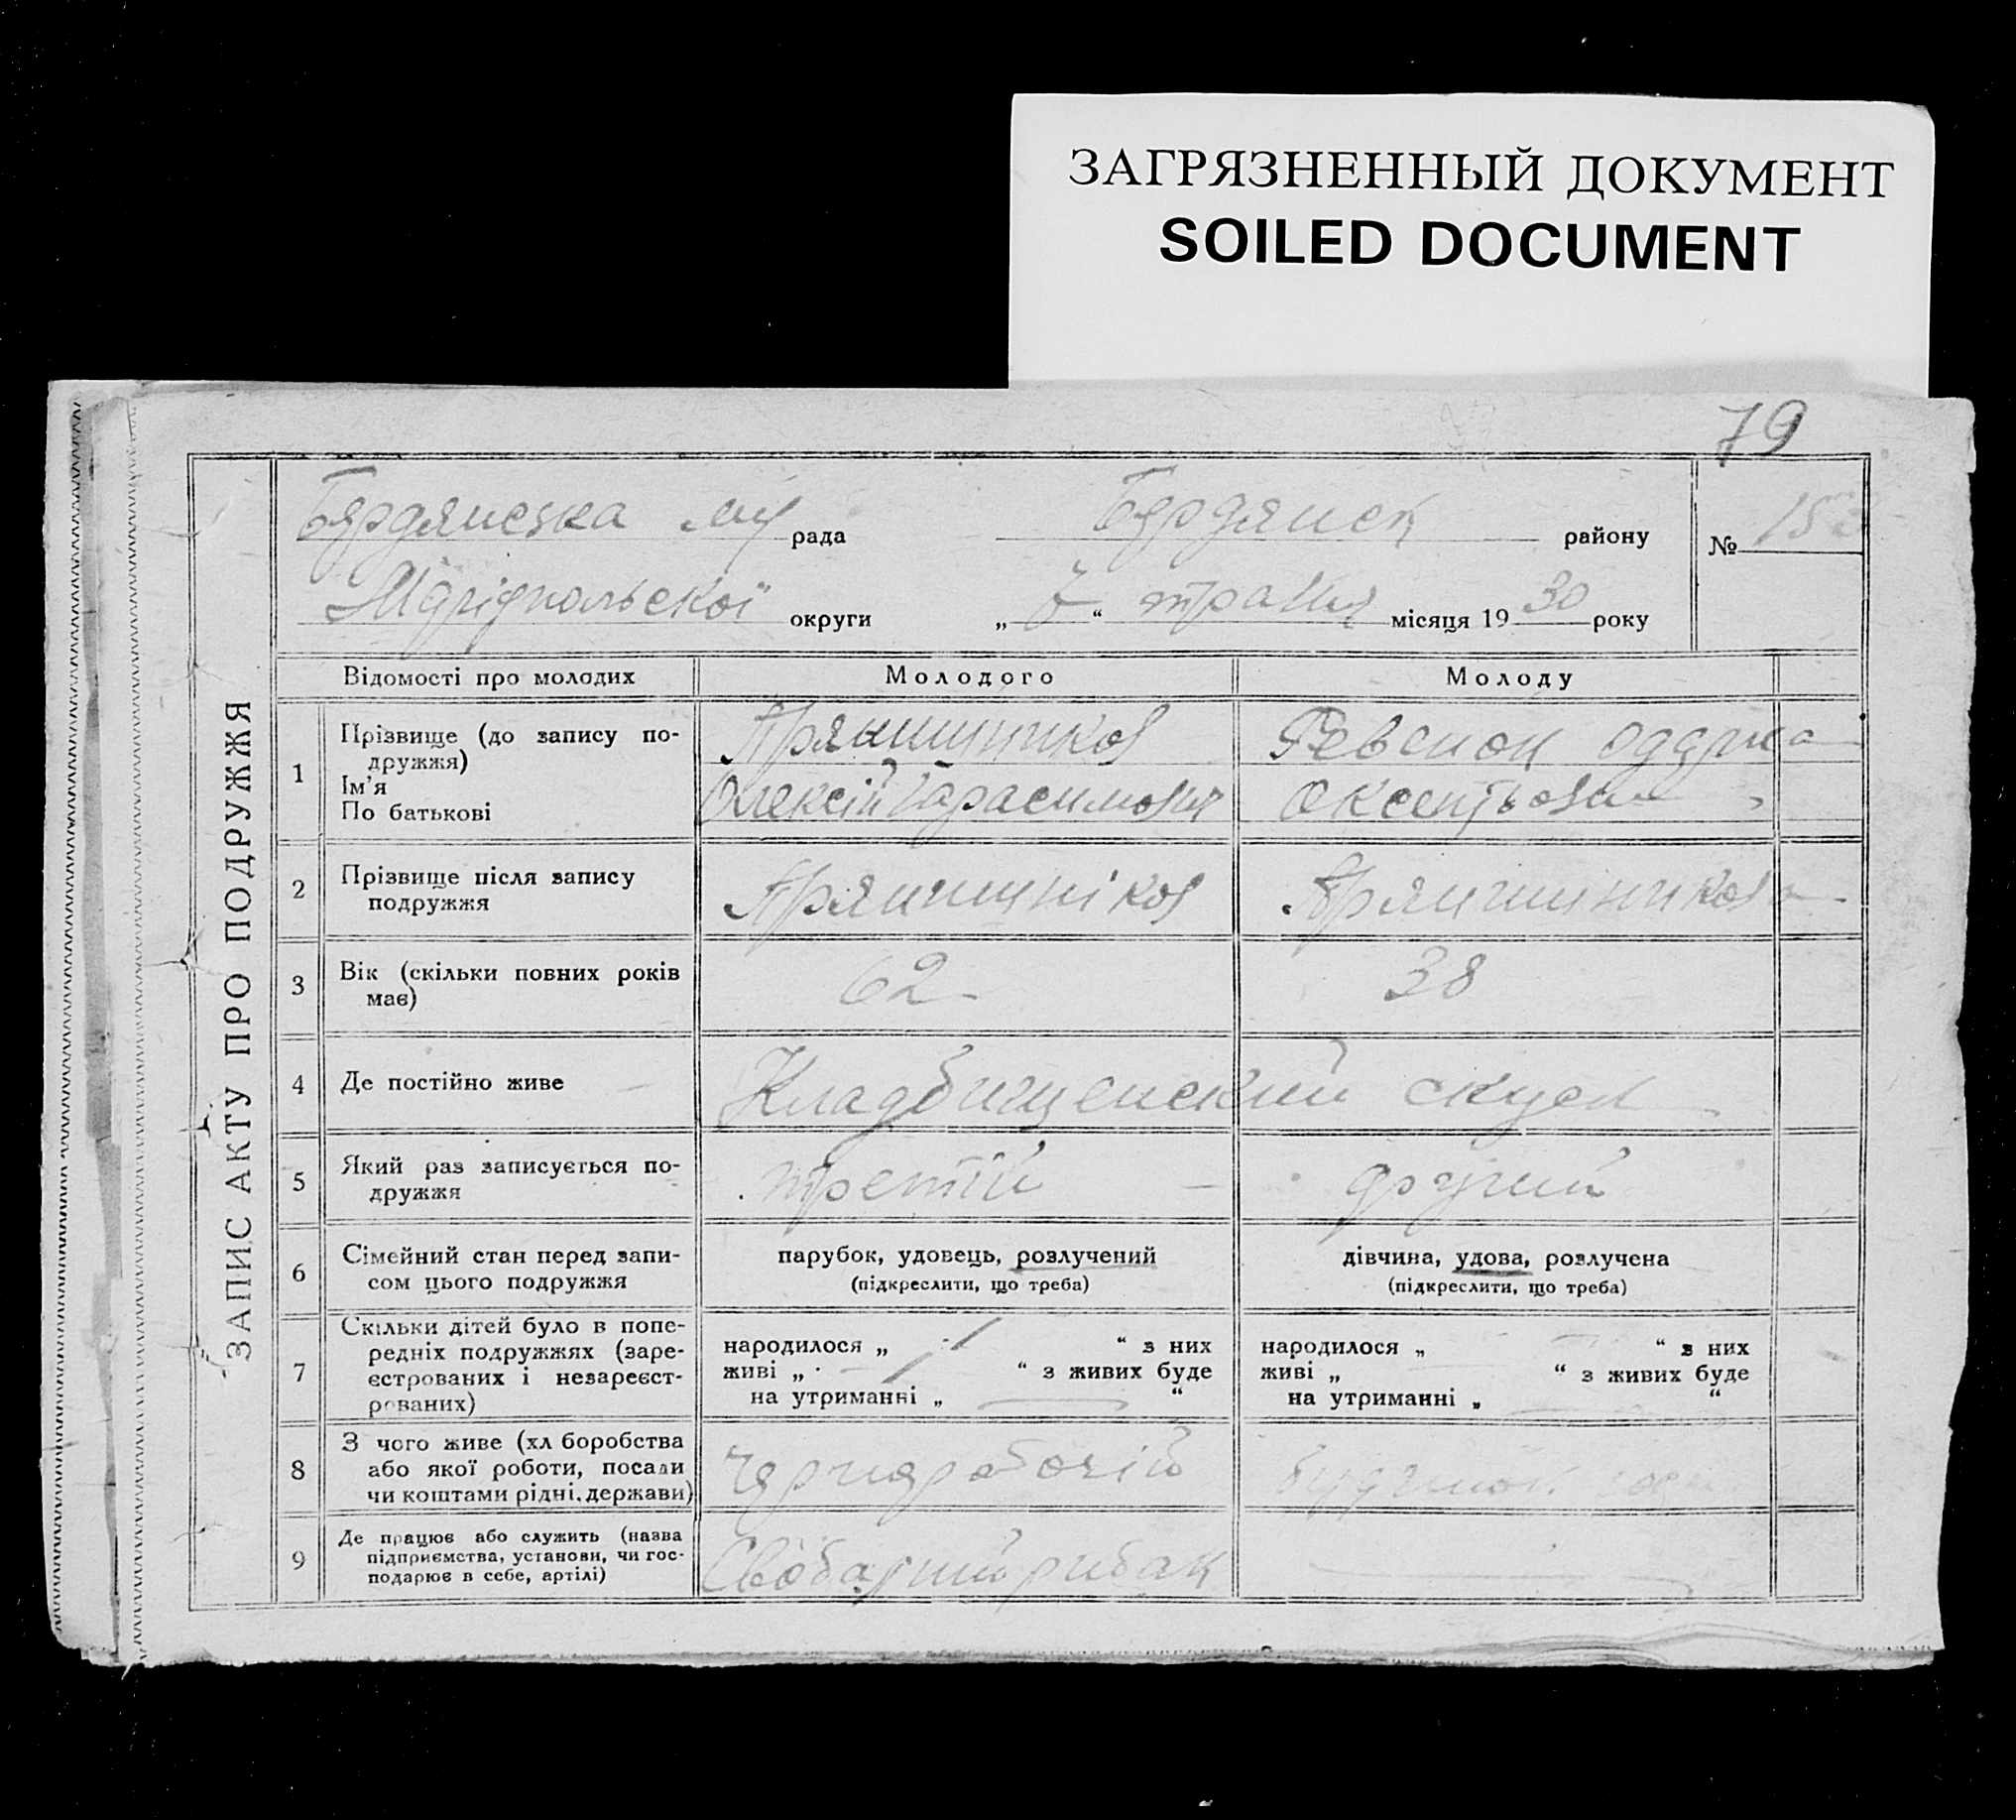 ЗАГРЯЗНЕННЫЙ ДОКУМЕНТ
SOILED DOCUMENT
79
ЗАПИС АКТУ ПРО ПОДРУЖЖЯ
Бярдянська рада Бердянск району №
округи „ “ травня місяця 1930 року
Відомості про молодих Молодого Молоду
1 Прізвище (до запису по-
дружжя)
Ім’я
По батькові
Прянишников
Олексій Гарасимович
Ревенок
2 Прізвище після запису
подружжя
Прянишніков Прянишникова
3 Вік (скільки повних років
має)
62 38
4 Де постійно живе Кладбищенский
5 Який раз записується по-
дружжя
третій другий
6 Сімейний стан перед запи-
сом цього подружжя
парубок, удовець, розлучений
(підкреслити, що треба)
дівчина, удова, розлучена
(підкреслити, що треба)
7 Скільки дітей було в попе-
редніх подружжях (заре-
єстрованих і незареєст-
рованих)
народилося „ “ з них
живі „ “ з живих буде
на утриманні „ “
народилося „ “ з них
живі „ “ з живих буде
на утриманні „ “
8 З чого живе (хліборобства
або якої роботи, посади
чи коштами рідні, держави)
9 Де працює або служить (назва
підприємства, установи, чи гос-
подарює в себе, артілі)
рибак